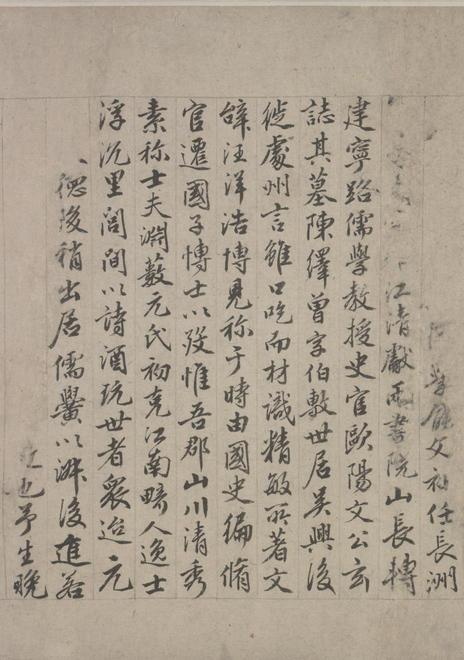 初任長洲
江清獻兩書院山長轉
建寧路儒學教授史官歐陽文公玄
誌其墓陳繹曾字伯敷世居吳興後
徙處州言雖口吃而材識精敏所著文
辭汪洋浩博見称于時由國史編脩
官遷國子博士以歿惟吾郡山川清秀
素称士夫淵藪元氏初克江南畸人逸士
浮沉里閭間以詩酒玩世者衆迨元
德後稍出居儒黌以淑後進若
也予生晚